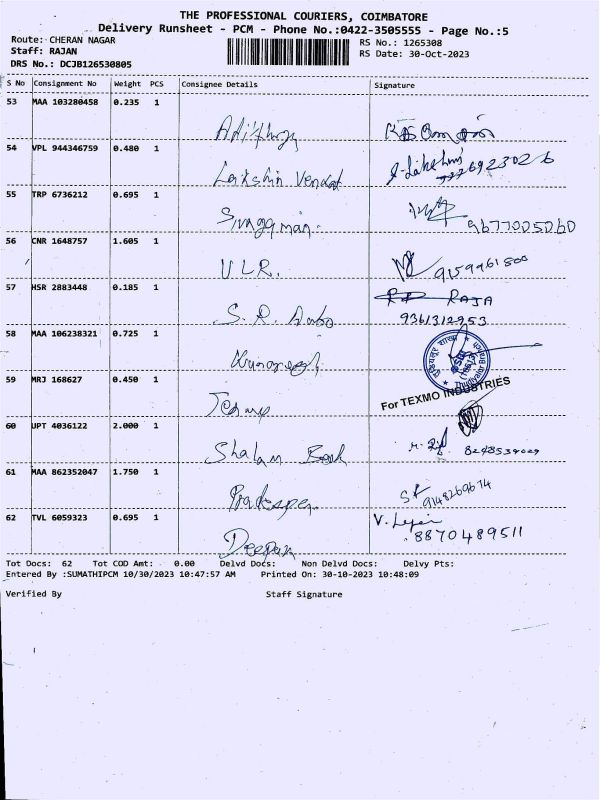 THE PROFESSIONAL COURIERS, COIMBATORE
Delivery Runsheet - PCM - Phone No.:0422-3505555 - Page No.:5
Route: CHERAN NAGAR
RS No.: 1265308
Staff: RAJAN
RS Date: 30-Oct-2023
DRS No.: DCJB126530805
S No Consignment No Weight PCS Consignee Details Signature
53 MAA 103280458 0.235 1
54 VPL 944346759 0.480 1
Lakshin Venkat
55 TRP 6736212 0.695 1
9677005060
56 CNR 1648757 1.605 1
V L R.
9159961800
57 HSR 2883448 0.185 1
RAJA
S. R.
9361312953
58 MAA 106238321 0.725 1
59 MRJ 168627 0.450 1
For TEXMO INDUSTRIES
60 UPT 4036122 2.000 1
61 MAA 862352047 1.750 1
9148269674
62 TVL 6059323 0.695 1
V.
8870489511
Deepak
Tot Docs: 62 Tot COD Amt: 0.00 Delvd Docs: Non Delvd Docs: Delvy Pts:
Entered By :SUMATHIPCM 10/30/2023 10:47:57 AM Printed On: 30-10-2023 10:48:09
Verified By Staff Signature